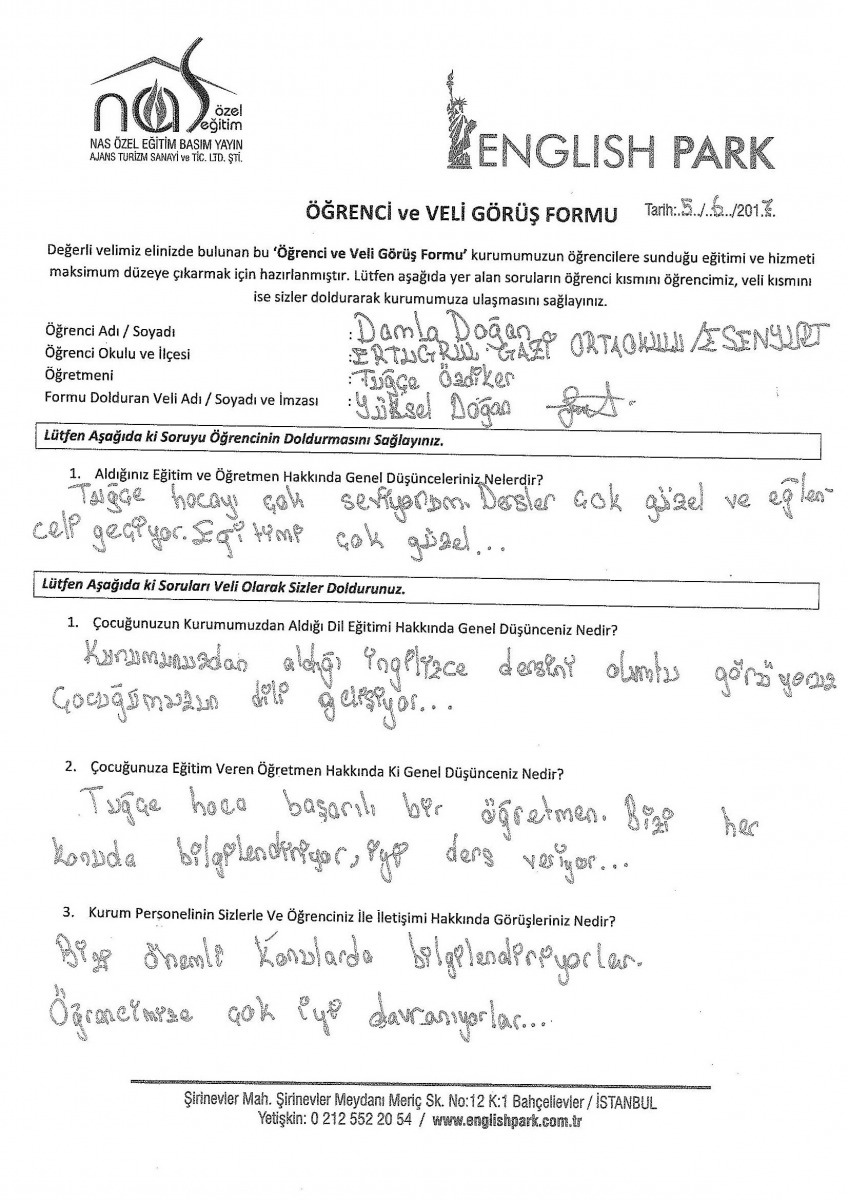 nas özel eğitim
NAS ÖZEL EĞİTİM BASIM YAYIN
AJANS TURİZM SANAYİ ve TİC. LTD. ŞTİ.
ENGLISH PARK
ÖĞRENCİ ve VELİ GÖRÜŞ FORMU Tarih:.5../..6../2017.
Değerli velimiz elinizde bulunan bu 'Öğrenci ve Veli Görüş Formu' kurumumuzun öğrencilere sunduğu eğitimi ve hizmeti
maksimum düzeye çıkarmak için hazırlanmıştır. Lütfen aşağıda yer alan soruların öğrenci kısmını öğrencimiz, veli kısmını
ise sizler doldurarak kurumumuza ulaşmasını sağlayınız.
Öğrenci Adı / Soyadı : Damla Doğan
Öğrenci Okulu ve İlçesi : ERTUĞRUL GAZİ ORTAOKULU/ESENYURT
Öğretmeni : Tuğçe Özdiker
Formu Dolduran Veli Adı / Soyadı ve İmzası : Yüksel Doğan
Lütfen Aşağıda ki Soruyu Öğrencinin Doldurmasını Sağlayınız.
1. Aldığınız Eğitim ve Öğretmen Hakkında Genel Düşünceleriniz Nelerdir?
Tuğçe hocayı çok seviyorum. Dersler çok güzel ve eğlen-
celi geçiyor. Eğitimi çok güzel...
Lütfen Aşağıda ki Soruları Veli Olarak Sizler Doldurunuz.
1. Çocuğunuzun Kurumumuzdan Aldığı Dil Eğitimi Hakkında Genel Düşünceniz Nedir?
Kurumunuzdan aldığı ingilizce dersini olumlu görüyoruz
Çocuğumuzun dili gelişiyor...
2. Çocuğunuza Eğitim Veren Öğretmen Hakkında Ki Genel Düşünceniz Nedir?
Tuğçe hoca başarılı bir öğretmen. Bizi her
konuda bilgilendiriyor, iyi ders veriyor...
3. Kurum Personelinin Sizlerle Ve Öğrenciniz İle İletişimi Hakkında Görüşleriniz Nedir?
Bizi önemli konularda bilgilendiriyorlar.
Öğrencimize çok iyi davranıyorlar...
Şirinevler Mah. Şirinevler Meydanı Meriç Sk. No:12 K:1 Bahçelievler / İSTANBUL
Yetişkin: 0 212 552 20 54 / www.englishpark.com.tr